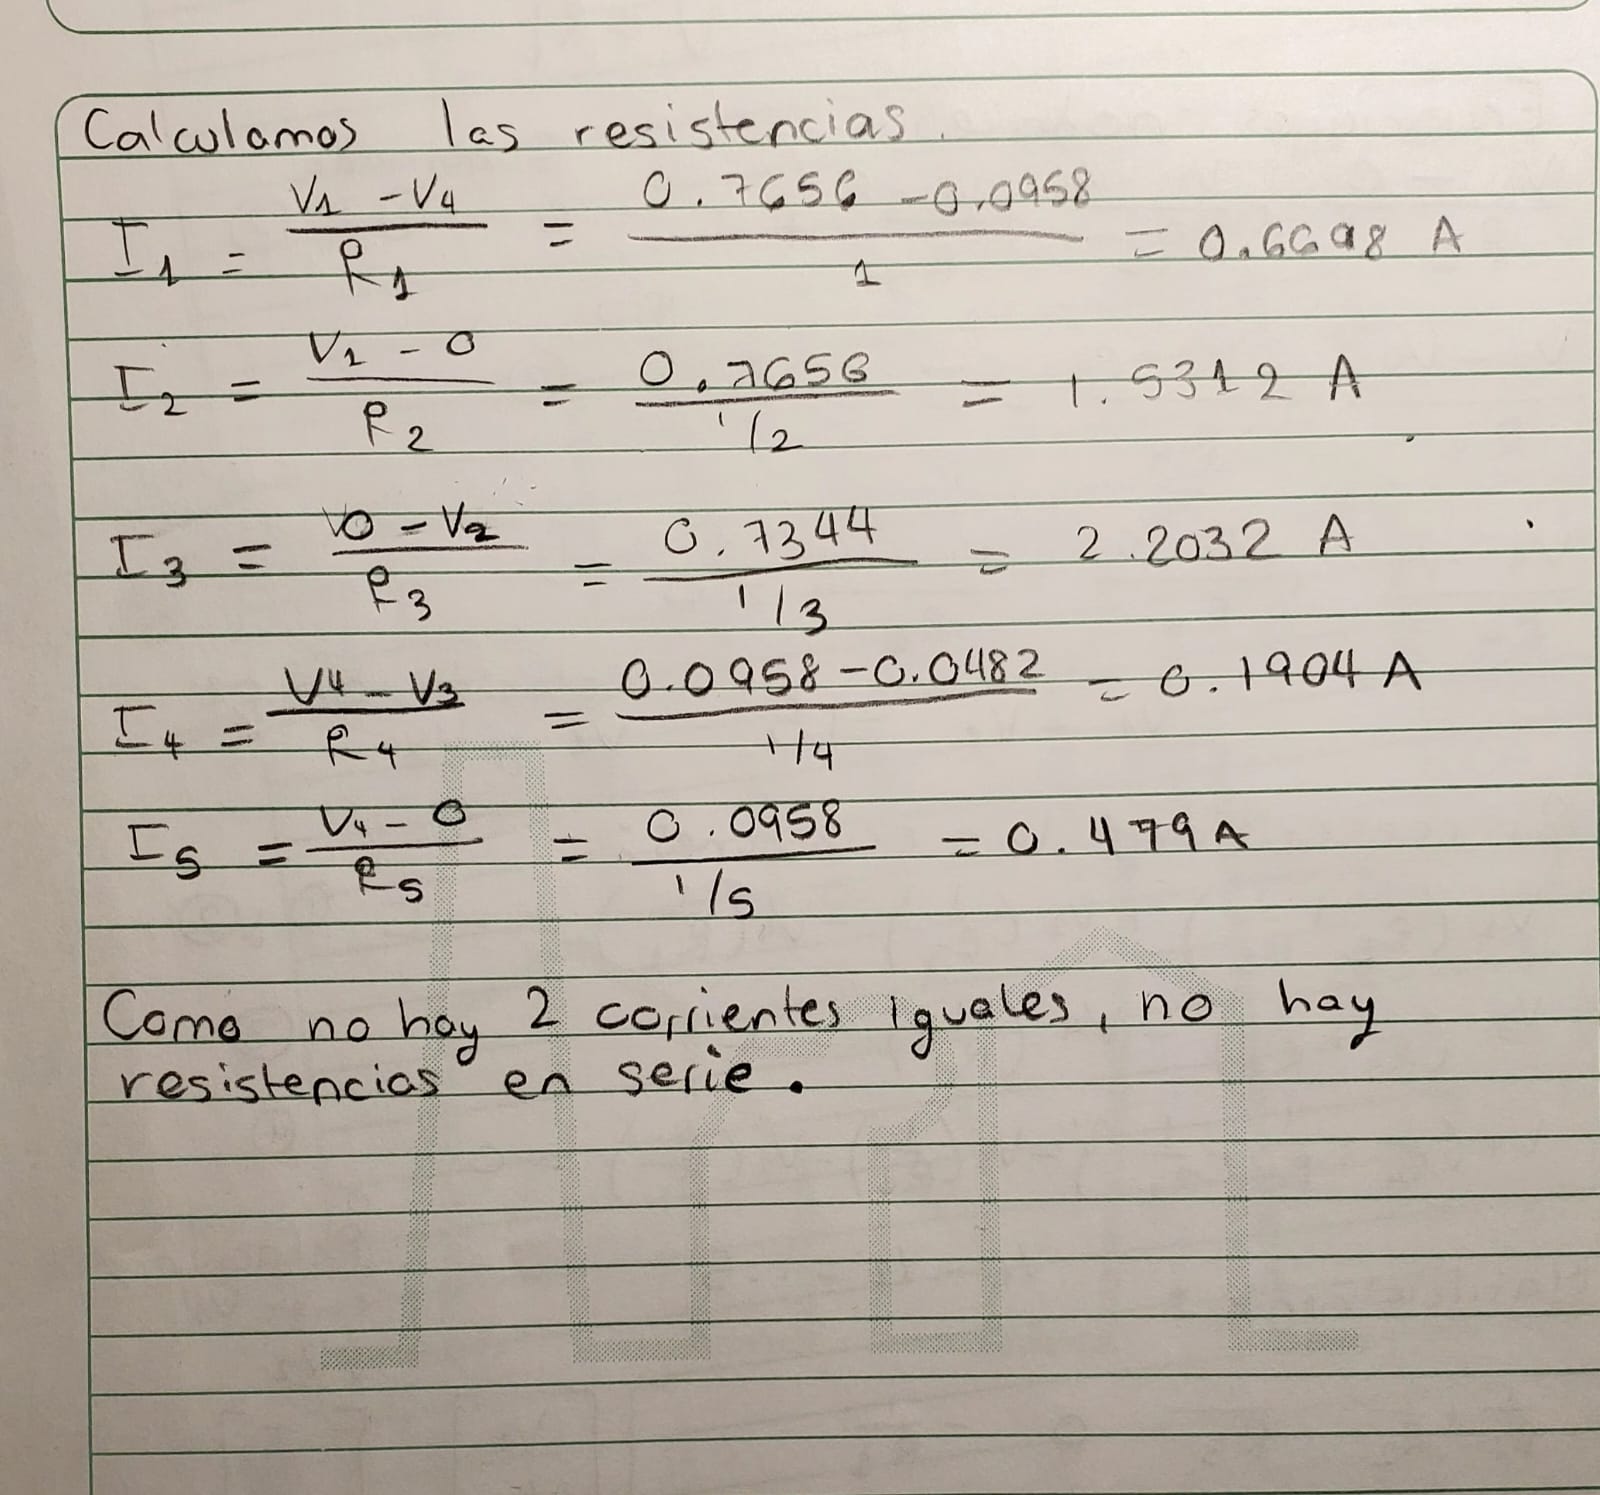 Calculamos las resistencias.
I1 = (V1 - V4) / R1 = (0.7656 - 0.0958) / 1 = 0.6698 A
I2 = (V1 - 0) / R2 = 0.7656 / (1/2) = 1.5312 A
I3 = (0 - V2) / R3 = 0.7344 / (1/3) = 2.2032 A
I4 = (V4 - V3) / R4 = (0.0958 - 0.0482) / (1/4) = 0.1904 A
I5 = (V4 - 0) / R5 = 0.0958 / (1/5) = 0.479 A
Como no hay 2 corrientes iguales, no hay
resistencias en serie.